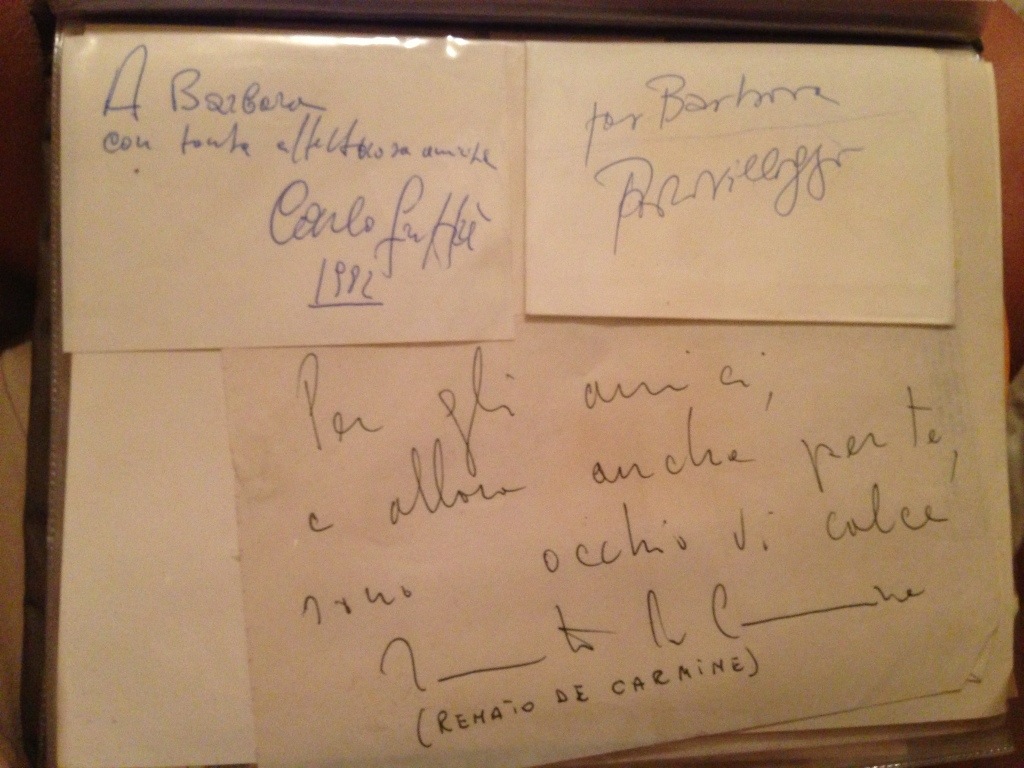 A Barbara
con tanta affettuosa amicizia
Carlo Giuffrè
1992
per Barbara
Paolo Villaggio
Per gli amici,
e allora anche per te,
sono occhio di calce
Renato De Carmine
(RENATO DE CARMINE)